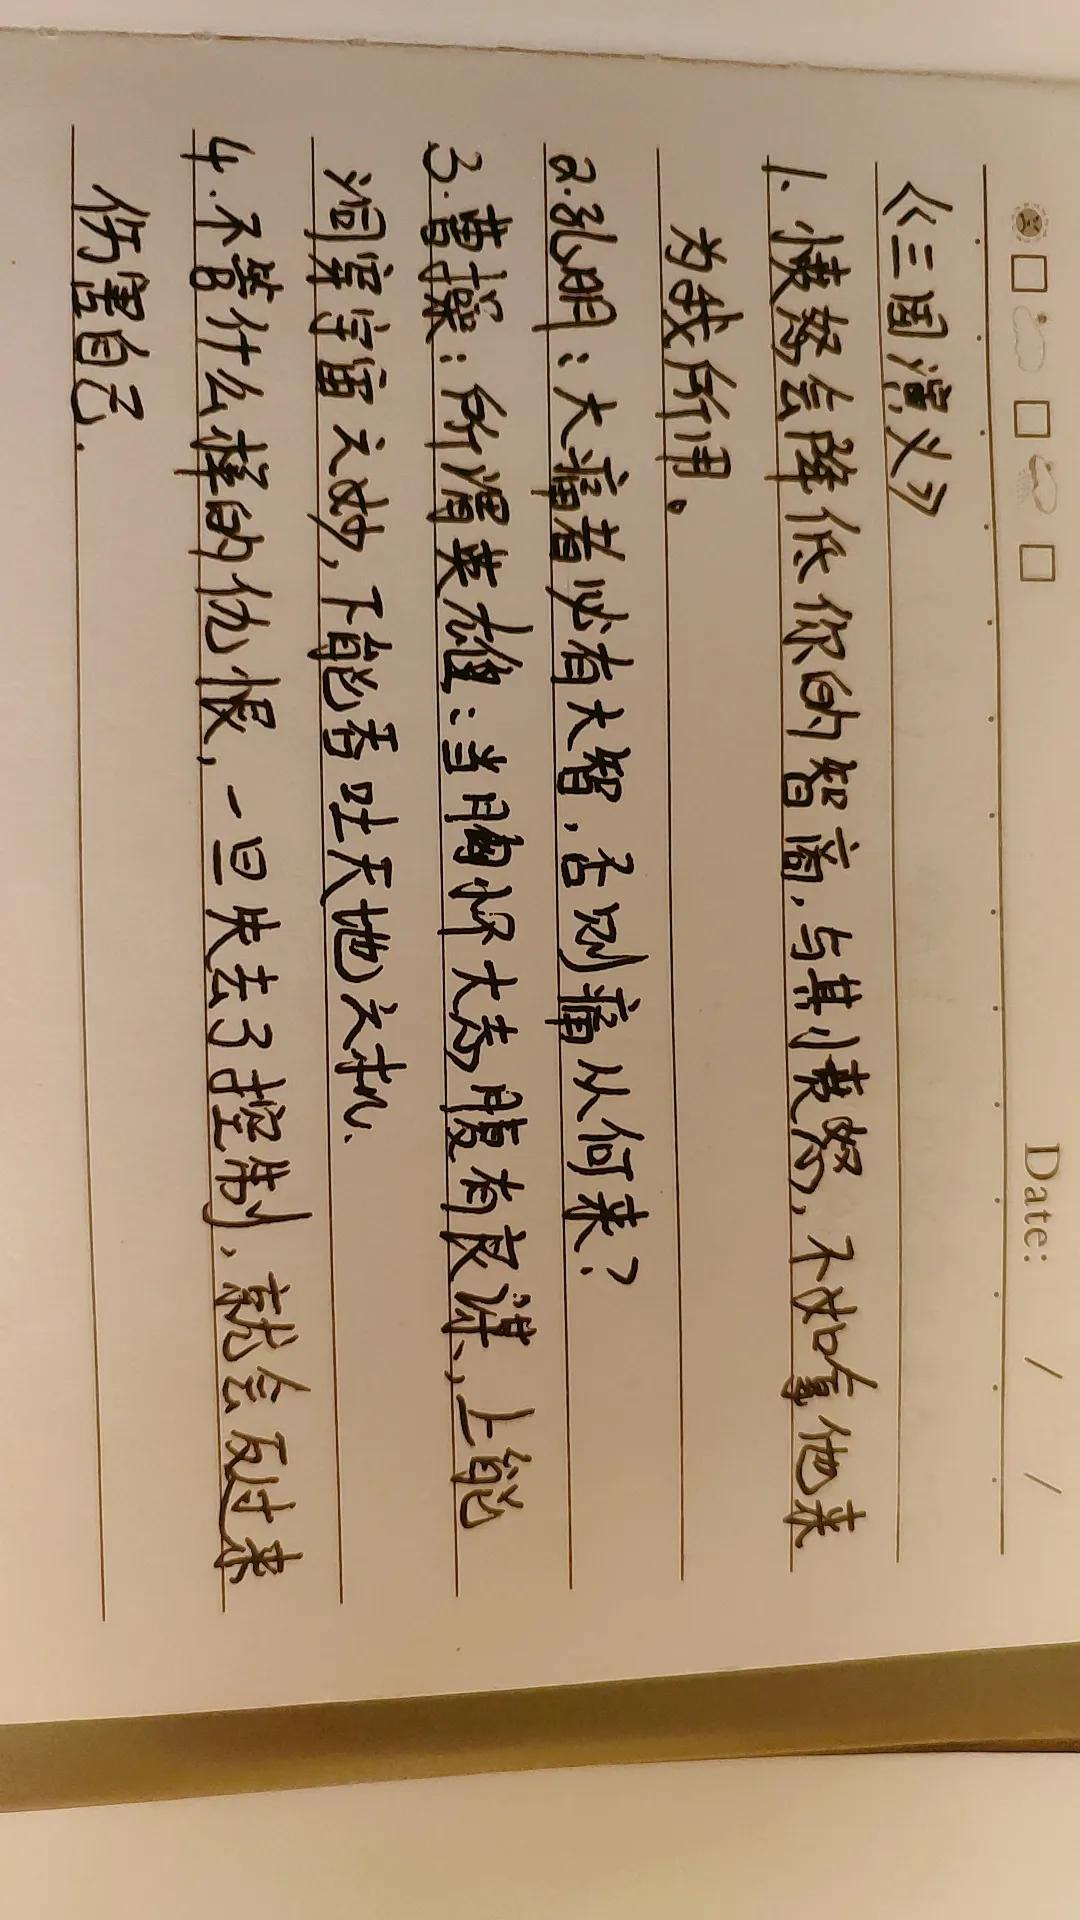 Date: / /
《三国演义》
1.愤怒会降低你的智商,与其愤怒,不如拿他来
为我所用。
2.孔明:大痛者必有大智,否则痛从何来?
3.曹操:所谓英雄:当胸怀大志腹有良谋,上能
洞穿宇宙之妙,下能吞吐天地之机、
4.不管什么样的仇恨,一旦失去了控制,就会反过来
伤害自己.